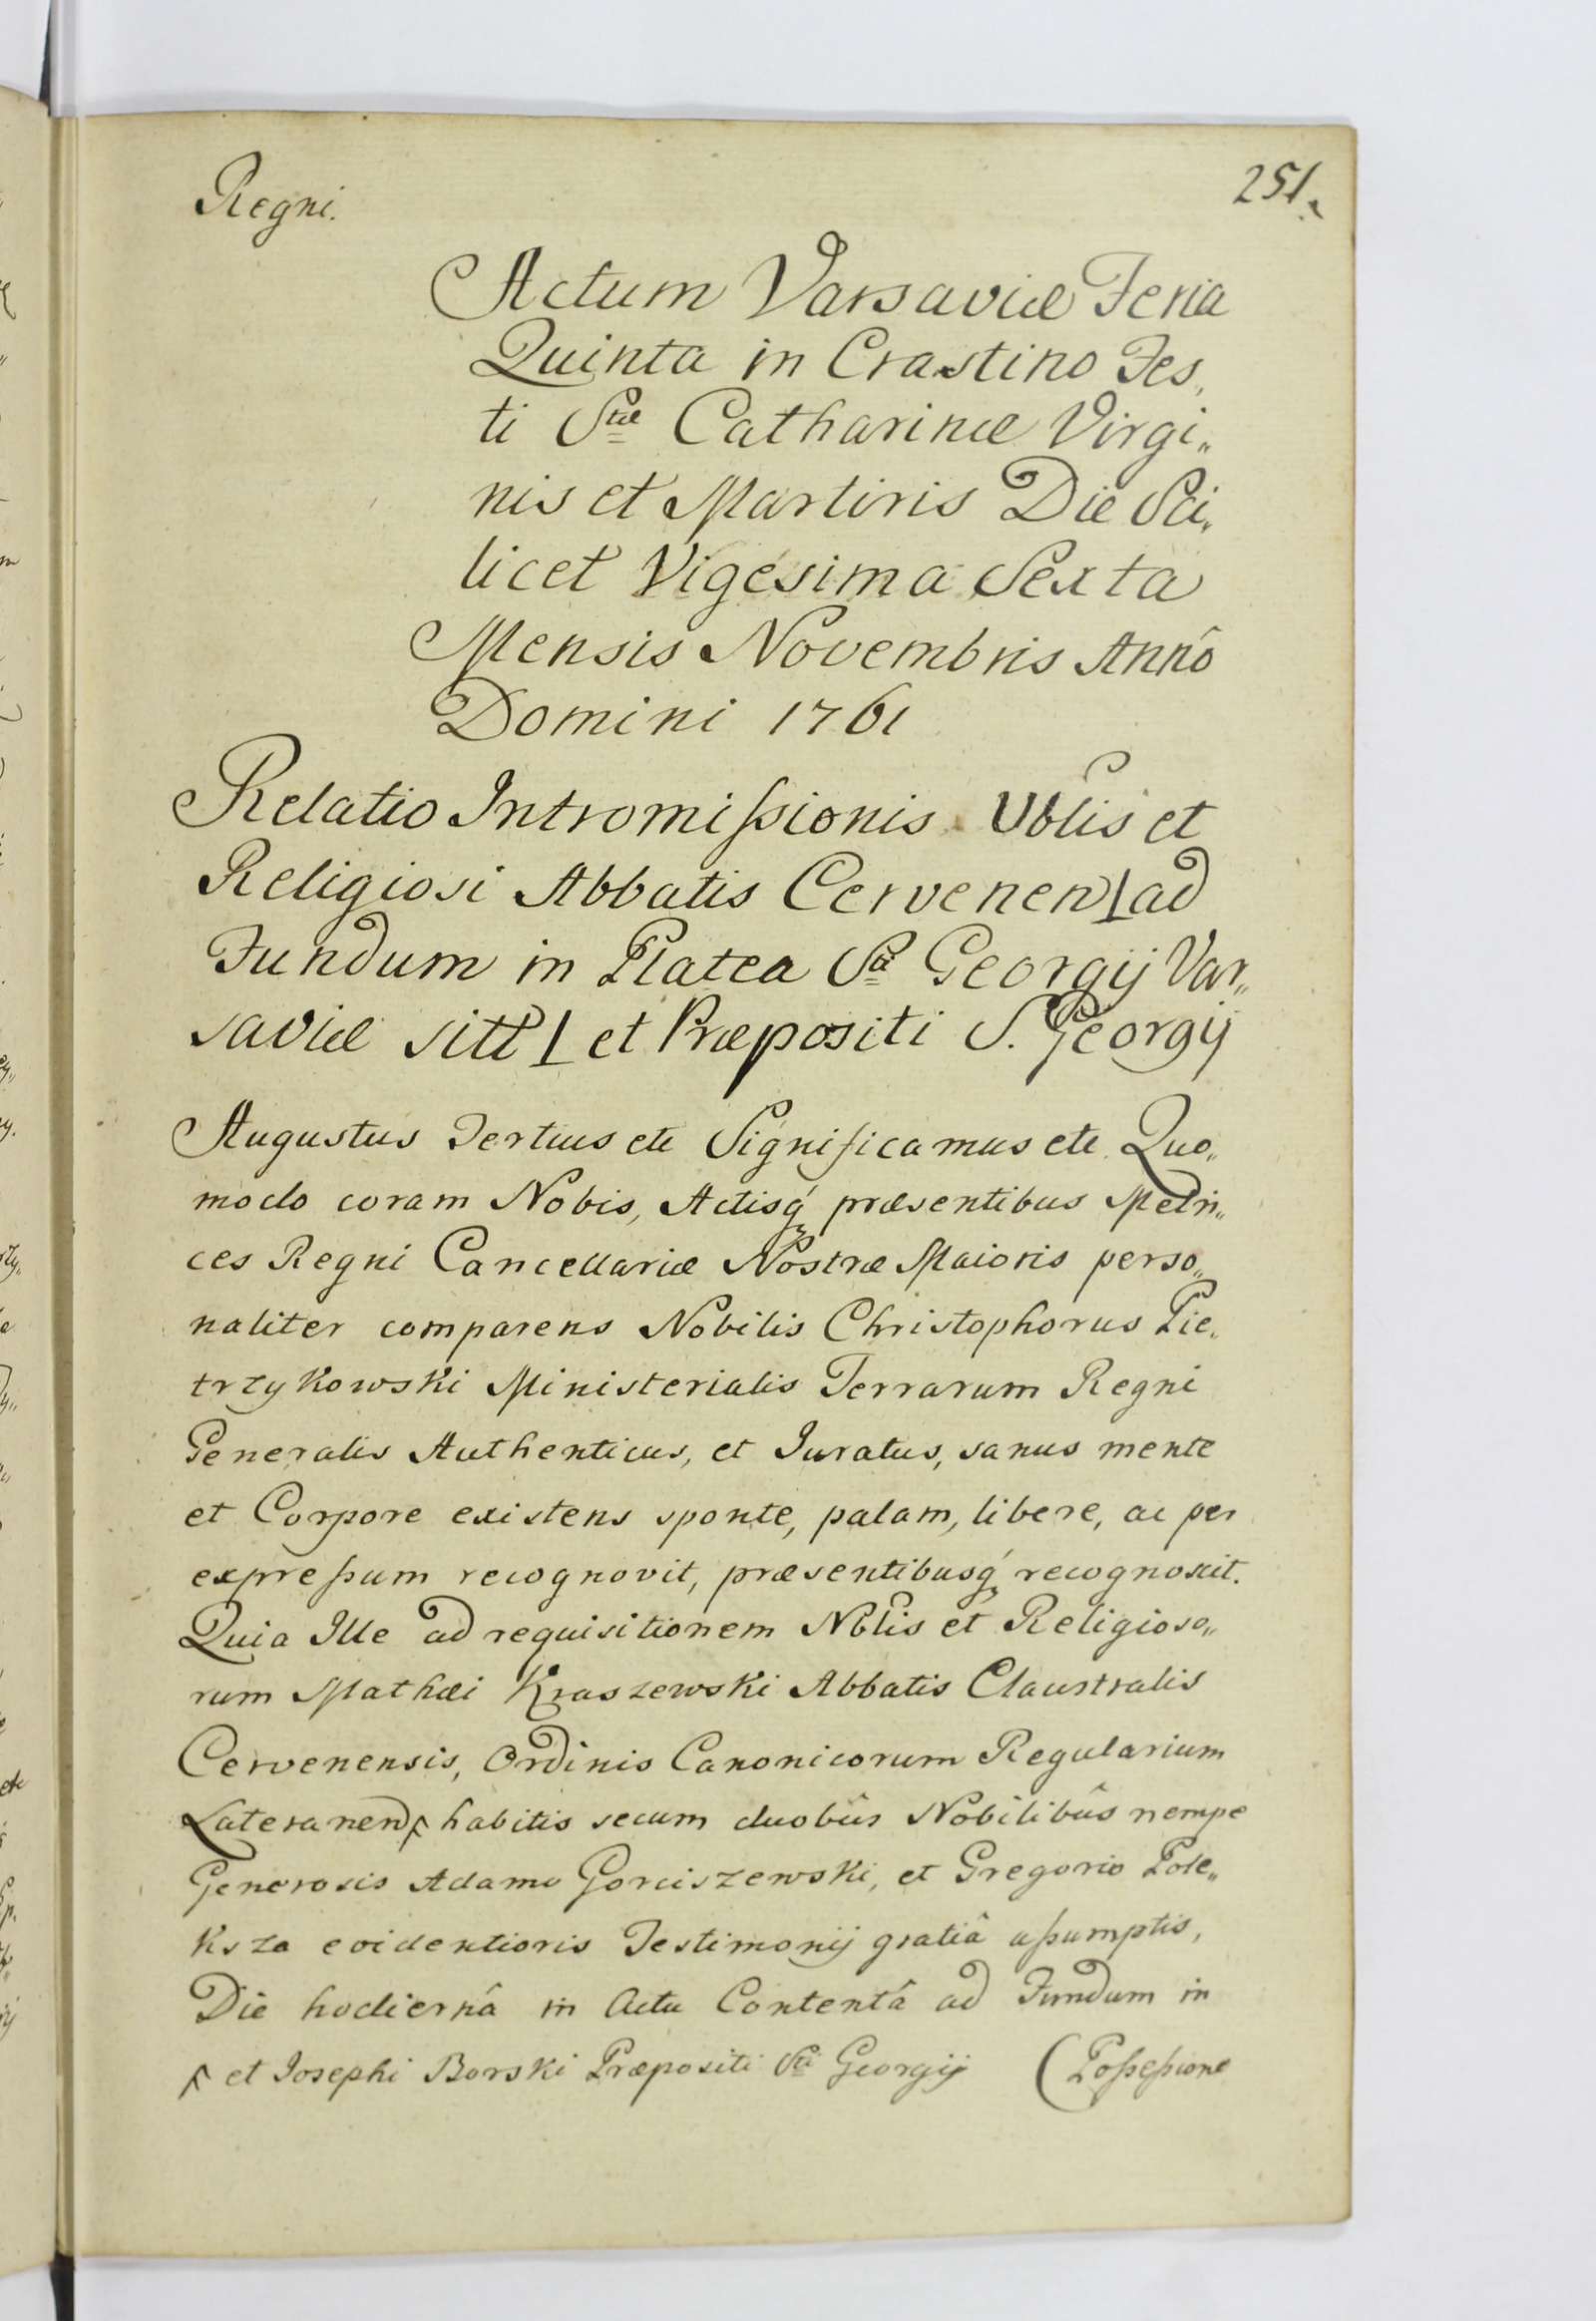 Regni.
251.
Actum Varsaviæ Feria
Quinta in Crastino Fes„
ti Stæ Catharinæ Virgi„
nis et Martiris Die Sci„
licet Vigesima Sexta
Mensis Novembris Annô
Domini 1761
Relatio Intromißionis Vblis et
Religiosi Abbatis Cervenen ad
Fundum in Platea Sti Georgij Var„
saviæ sitt et Præpositi S. Georgij
Augustus Tertius etc Significamus etc. Quo„
modo coram Nobis, Actisq́ præsentibus Metri„
ces Regni Cancellariæ Nostræ Maioris perso„
naliter comparens Nobilis Christophorus Pie„
trzykowski Ministerialis Terrarum Regni
Generalis Authenticus, et Iuratus, sanus mente
et Corpore existens sponte, palam, libere, ac per
expreßum recognovit, præsentibusq́ recognoscit.
Quia Ille ad requisitionem Nblis et Religioso„
rum Mathæi Kraszewski Abbatis Claustralis
Cervenensis, Ordinis Canonicorum Regularium
Lateranen habitis secum duobûs Nobilibûs nempe
Generosis Adamo Gorciszewski, et Gregorio Pole„
ksza evidentioris Testimonij gratiâ aßumptis,
Die hodiernâ in Actu Contentâ ad Fundum in
et Iosephi Borski Præpositi Sti Georgij (Poßeßione